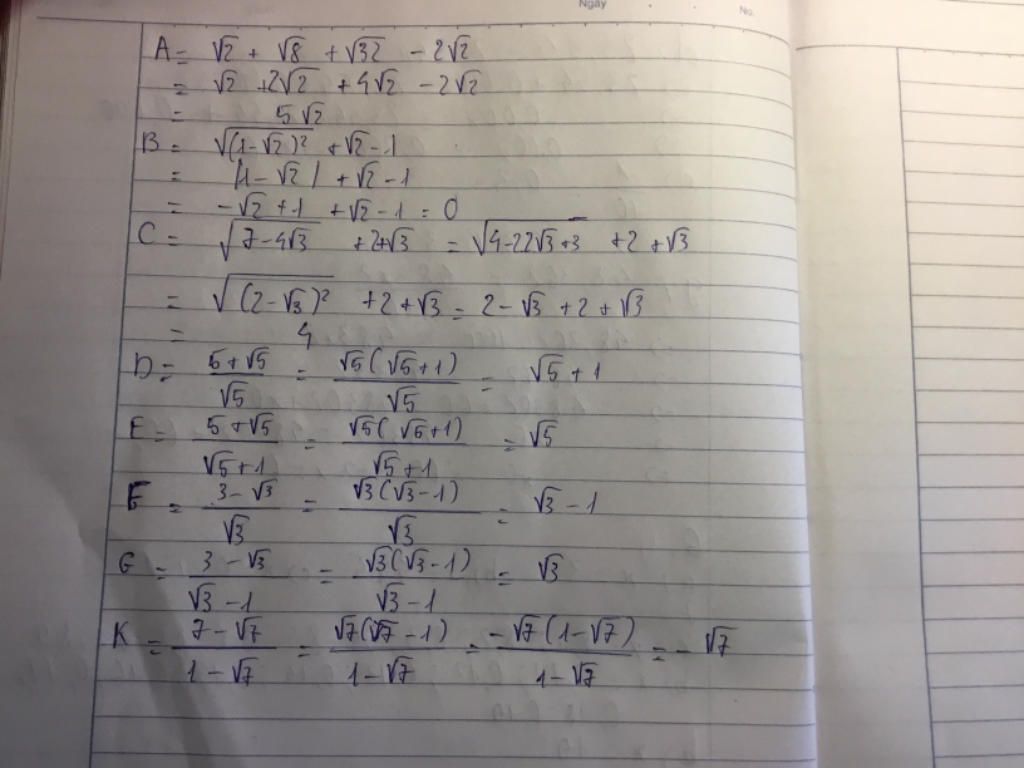 Ngày
No.
A = √2 + √8 + √32 - 2√2
= √2 + 2√2 + 4√2 - 2√2
= 5√2
B = √(1-√2)² + √2 - 1
= |1 - √2| + √2 - 1
= -√2 + 1 + √2 - 1 = 0
C = √7 - 4√3 + 2+√3 = √4-22√3+3 + 2 + √3
= √(2 - √3)² + 2 + √3 = 2 - √3 + 2 + √3
= 4
D = 5 + √5 / √5 = √5(√5 + 1) / √5 = √5 + 1
E = 5 + √5 / √5 + 1 = √5(√5+1) / √5 + 1 = √5
F = 3 - √3 / √3 = √3(√3 - 1) / √3 = √3 - 1
G = 3 - √3 / √3 - 1 = √3(√3 - 1) / √3 - 1 = √3
K = 7 - √7 / 1 - √7 = √7(√7 - 1) / 1 - √7 = -√7(1 - √7) / 1 - √7 = - √7